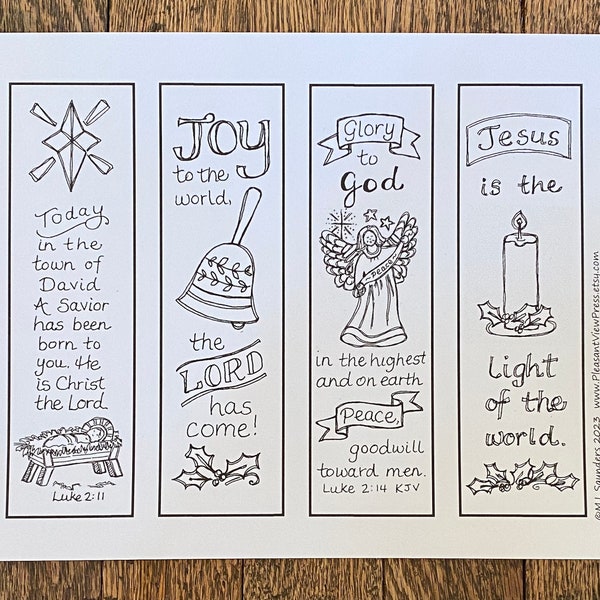 Today
in the
town of
David
A Savior
has been
born to
you. He
is Christ
the Lord
Luke 2:11
Joy
to the
world,
the
LORD
has
come!
Glory
to
God
Peace
in the highest
and on earth
Peace,
goodwill
toward men.
Luke 2:14 KJV
Jesus
is the
Light
of the
world.
©M.L. Saunders 2023 www.PleasantViewPress.etsy.com